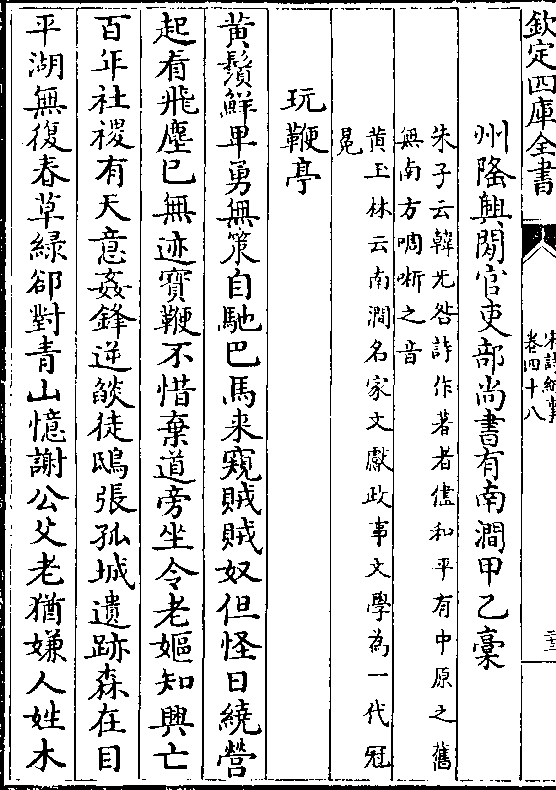 欽定四庫全書
宋詩紀事
卷四十八
二十三
州隆興開官吏部尚書有南澗甲乙稾
朱子云韓无咎詩作著者儘和平有中原之舊
無南方啁哳之音
黄玉林云南澗名家文獻政事文學為一代冠
冕
玩鞭亭
黄鬚鮮卑勇無策自馳巴馬来窺賊賊奴但怪日繞營
起看飛塵已無迹寶鞭不惜棄道旁坐令老嫗知興亡
百年社稷有天意姦鋒逆燄徒鴟張孤城遺跡森在目
平湖無復春草緑郤對青山憶謝公父老猶嫌人姓木